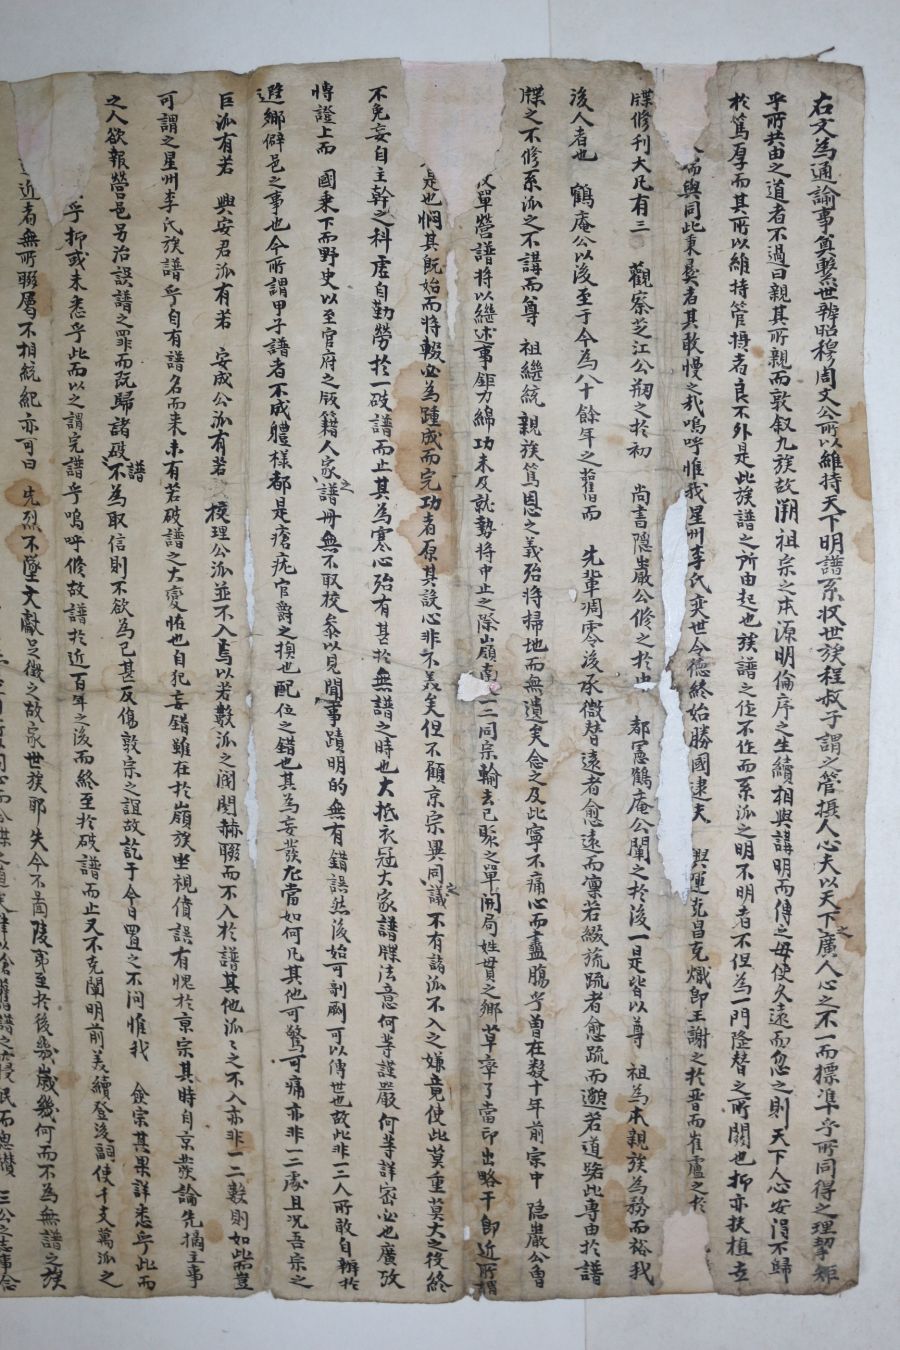 右文為通諭事奠繫世辨昭穆周文公所以維持天下明譜系收世族程叔子謂之管攝人心夫以天下之廣人心之不一而標準乎所同得之理挈矩
乎所共由之道者不過曰親其所親而敦叙九族故溯祖宗之本源明倫序之生續相與講明而傳之毋使久遠而忽之則天下人心安得不歸
於篤厚而其所以維持管攝者良不外是此族譜之所由起也族譜之作不作而系派之明不明者不但為一門隆替之所關也抑亦扶植立
而與同此秉彛者其敢慢之哉嗚呼惟我星州李氏奕世令德終始勝國逮夫 興運克昌克熾卽王謝之於晋而崔盧之於
牒修刊大凡有三 觀察芝江公刱之於初 尚書隱巖公修之於中 都憲鶴庵公闡之於後一是皆以尊 祖為本親族為務而裕我
後人者也 鶴庵公以後至于今為八十餘年之舊而 先輩凋零後承微替遠者愈遠而凛若綴旒疏者愈疏而邈若道路此專由於譜
牒之不修系派之不講而尊 祖繼統 親族篤恩之義殆將掃地而無遺矣念之及此寧不痛心而盡膓乎曾在數十年前宗中 隱巖公曾
收單營譜將以繼述事鉅力綿功未及就勢將中止之除嶺南一二同宗輸去已聚之單開局姓貫之鄉草草了當印出略干卽近所謂
是也憫其旣始而將輟必為踵成而完功者原其設心非不美矣但不顧京宗異同之議不有諸派不入之嫌竟使此莫重莫大之後終
不免妄自主幹之科虛自勤勞於一破譜而止其為寒心殆有甚於無譜之時也大抵衣冠大家譜牒法意何等謹嚴何等詳密必也廣攷
博證上而 國乘下而野史以至官府之版籍人家之譜册無不取校叅以見聞事蹟明的無有錯誤然後始可剞劂可以傳世也故此非一二人所敢自辦於
遐鄉僻邑之事也今所謂甲子譜者不成軆樣都是瘡疣官爵之換也配位之錯也其為妄發尤當如何凡其他可驚可痛亦非一二處且况吾宗之
巨派有若 興安君派有若 安成公派有若 校理公派並不入焉以若數派之閥閱赫聯而不入於譜其他派之不入亦非一二數則如此而豈
可謂之星州李氏族譜乎自有譜名而来未有若破譜之大變恠也自犯妄錯雖在於嶺族坐視僨誤有愧於京宗其時自京發論先摘主事
之人欲報營邑另治誤譜之罪而旣歸諸破譜不為取信則不欲為已甚反傷敦宗之誼故訖于今日置之不问惟我 僉宗其果詳悉乎此而
乎抑或未悉乎此而以之謂完譜乎嗚呼修故譜於近百年之後而終至於破譜而止又不克闡明前美續登後嗣使千支萬派之
近者無所聯屬不相統紀亦可曰 先烈不墜文獻足徵之故家世族耶失今不啚陵夷至於後幾歲幾何而不為無譜之族